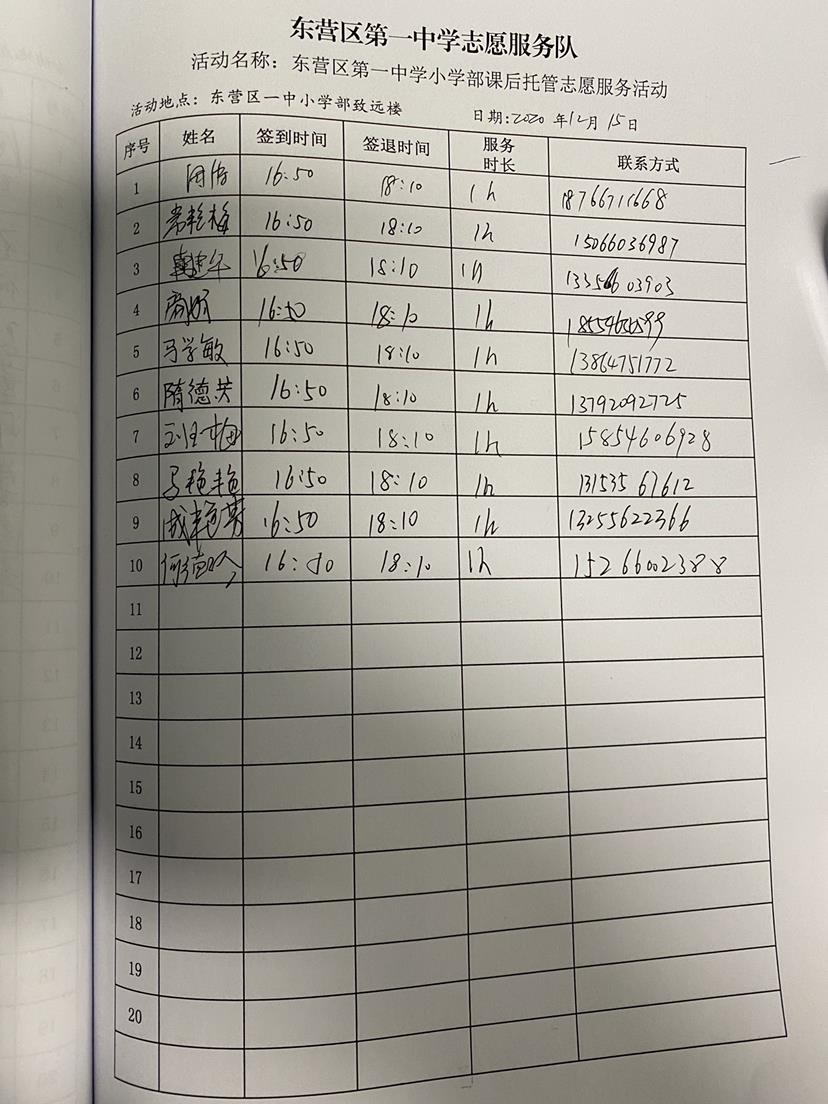 东营区第一中学志愿服务队
活动名称：东营区第一中学小学部课后托管志愿服务活动
活动地点：东营区一中小学部致远楼 日期:2020年12月15日
序号 姓名 签到时间 签退时间 服务时长 联系方式
1 16:50 18:10 1h 18766711668
2 常艳梅 16:50 18:10 1h 15066036987
3 16:50 18:10 1h
4 商娇 16:50 18:10 1h
5 马学敏 16:50 18:10 1h 13864751772
6 隋德芙 16:50 18:10 1h 13792092725
7 16:50 18:10 1h 15854606928
8 马艳艳 16:50 18:10 1h 13153567612
9 成艳英 16:50 18:10 1h 13255622366
10 16:50 18:10 1h 15266002388
11
12
13
14
15
16
17
18
19
20